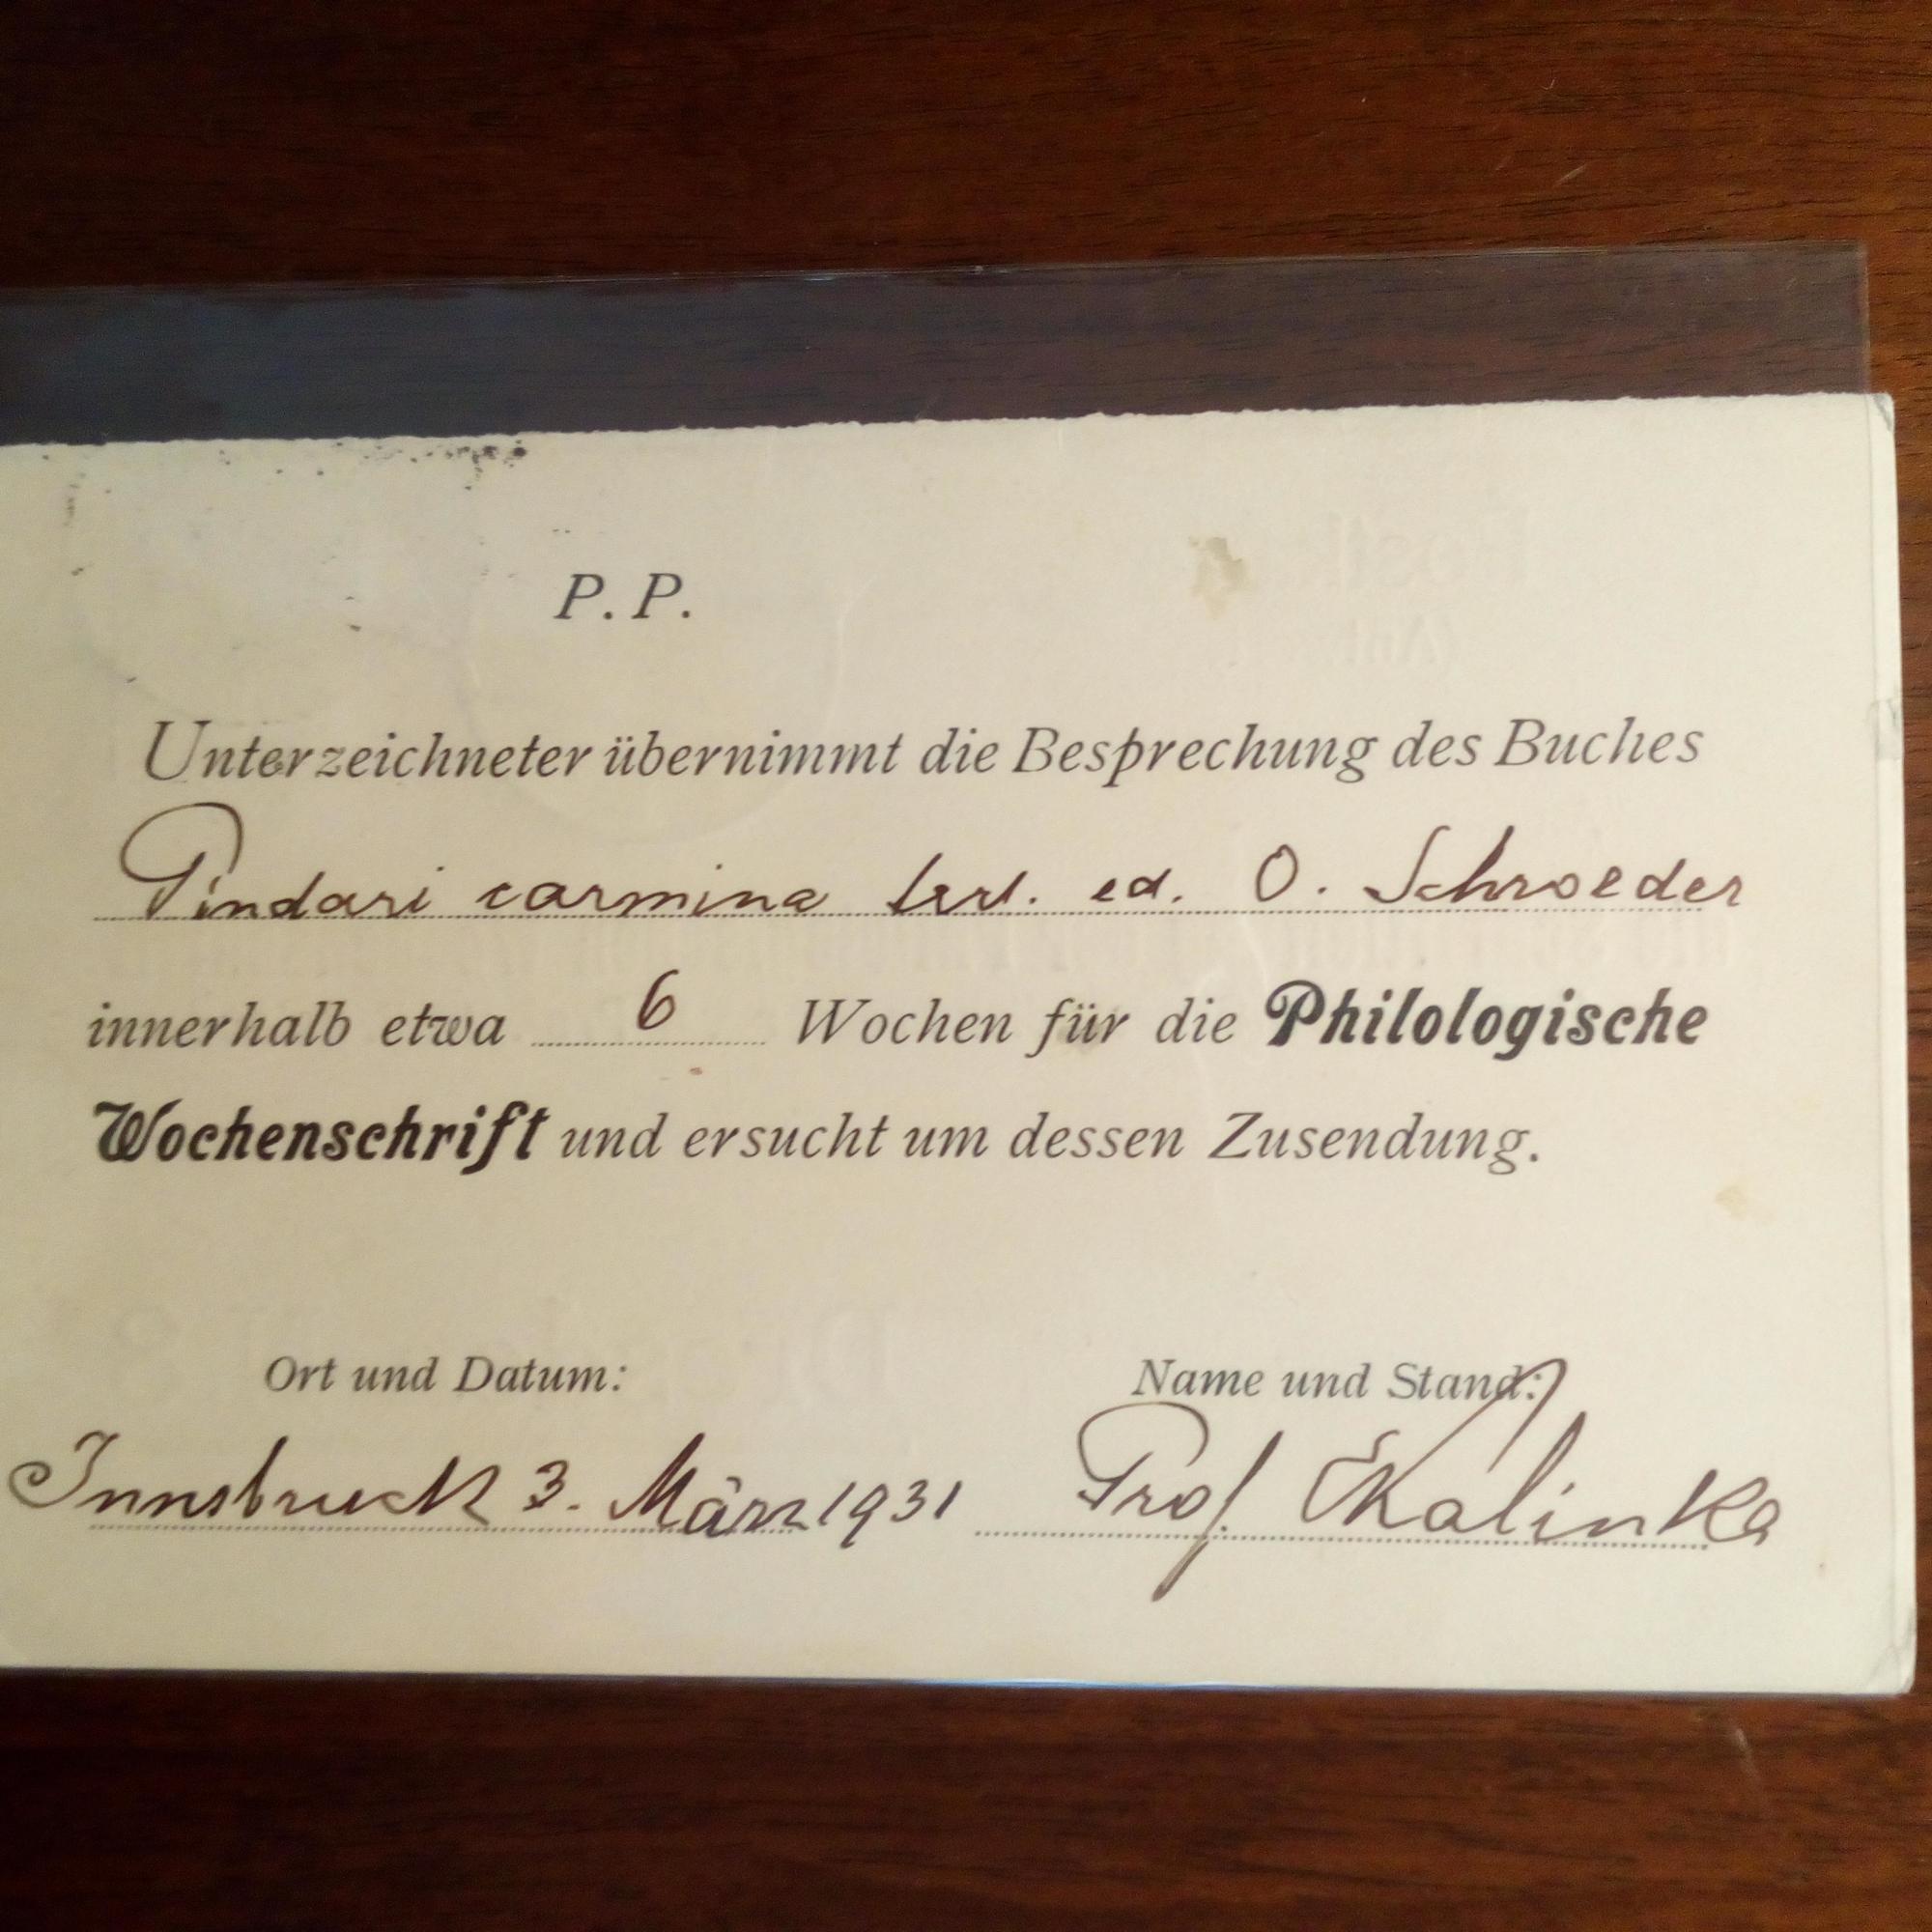 P. P.
Unterzeichneter übernimmt die Besprechung des Buches
Pindari carmina ed. O. Schroeder
innerhalb etwa 6 Wochen für die Philologische
Wochenschrift und ersucht um dessen Zusendung.
Ort und Datum: Name und Stand:
Innsbruck 3. März 1931 Prof. EKalinka